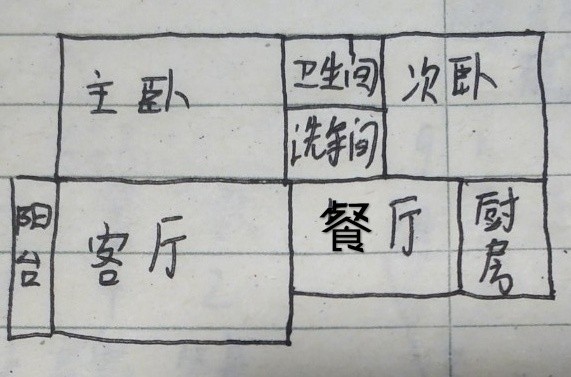 主卧
卫生间
次卧
洗手间
阳台
客厅
餐厅
厨房